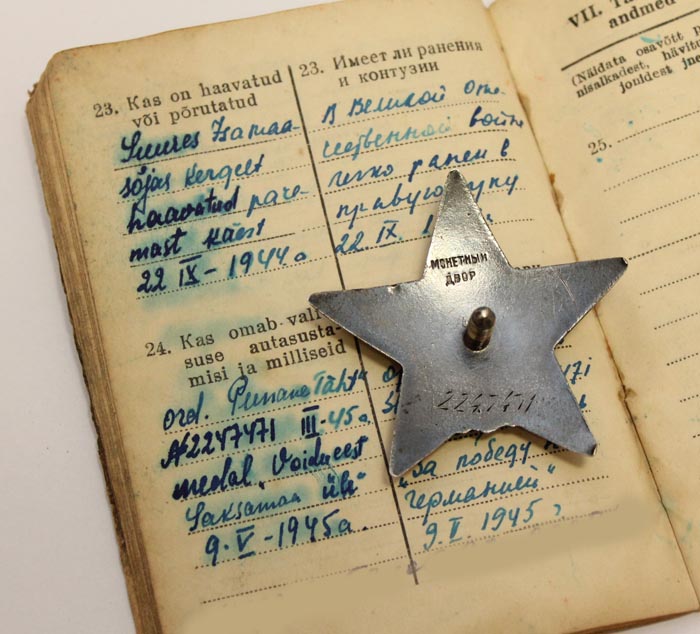 23. Kas on haavatud
või põrutatud
Suures Isamaa-
sõjas kergelt
haavatud para-
mast käest
22 IX - 1944 a
24. Kas omab vali-
suse autasusta-
misi ja milliseid
ord. "Punane Täht"
№2247471 III 45 a.
medal "Võidu eest
Saksamaa üle"
9. V - 1945 a.
23. Имеет ли ранения
и контузии
В Великой Оте-
чественной войне
легко ранен в
правую руку
22 IX.
"За победу
Германией"
9. V. 1945 г
МОНЕТНЫЙ
ДВОР
2247471
VII.
andmed
(Näidata osavõtt
25.